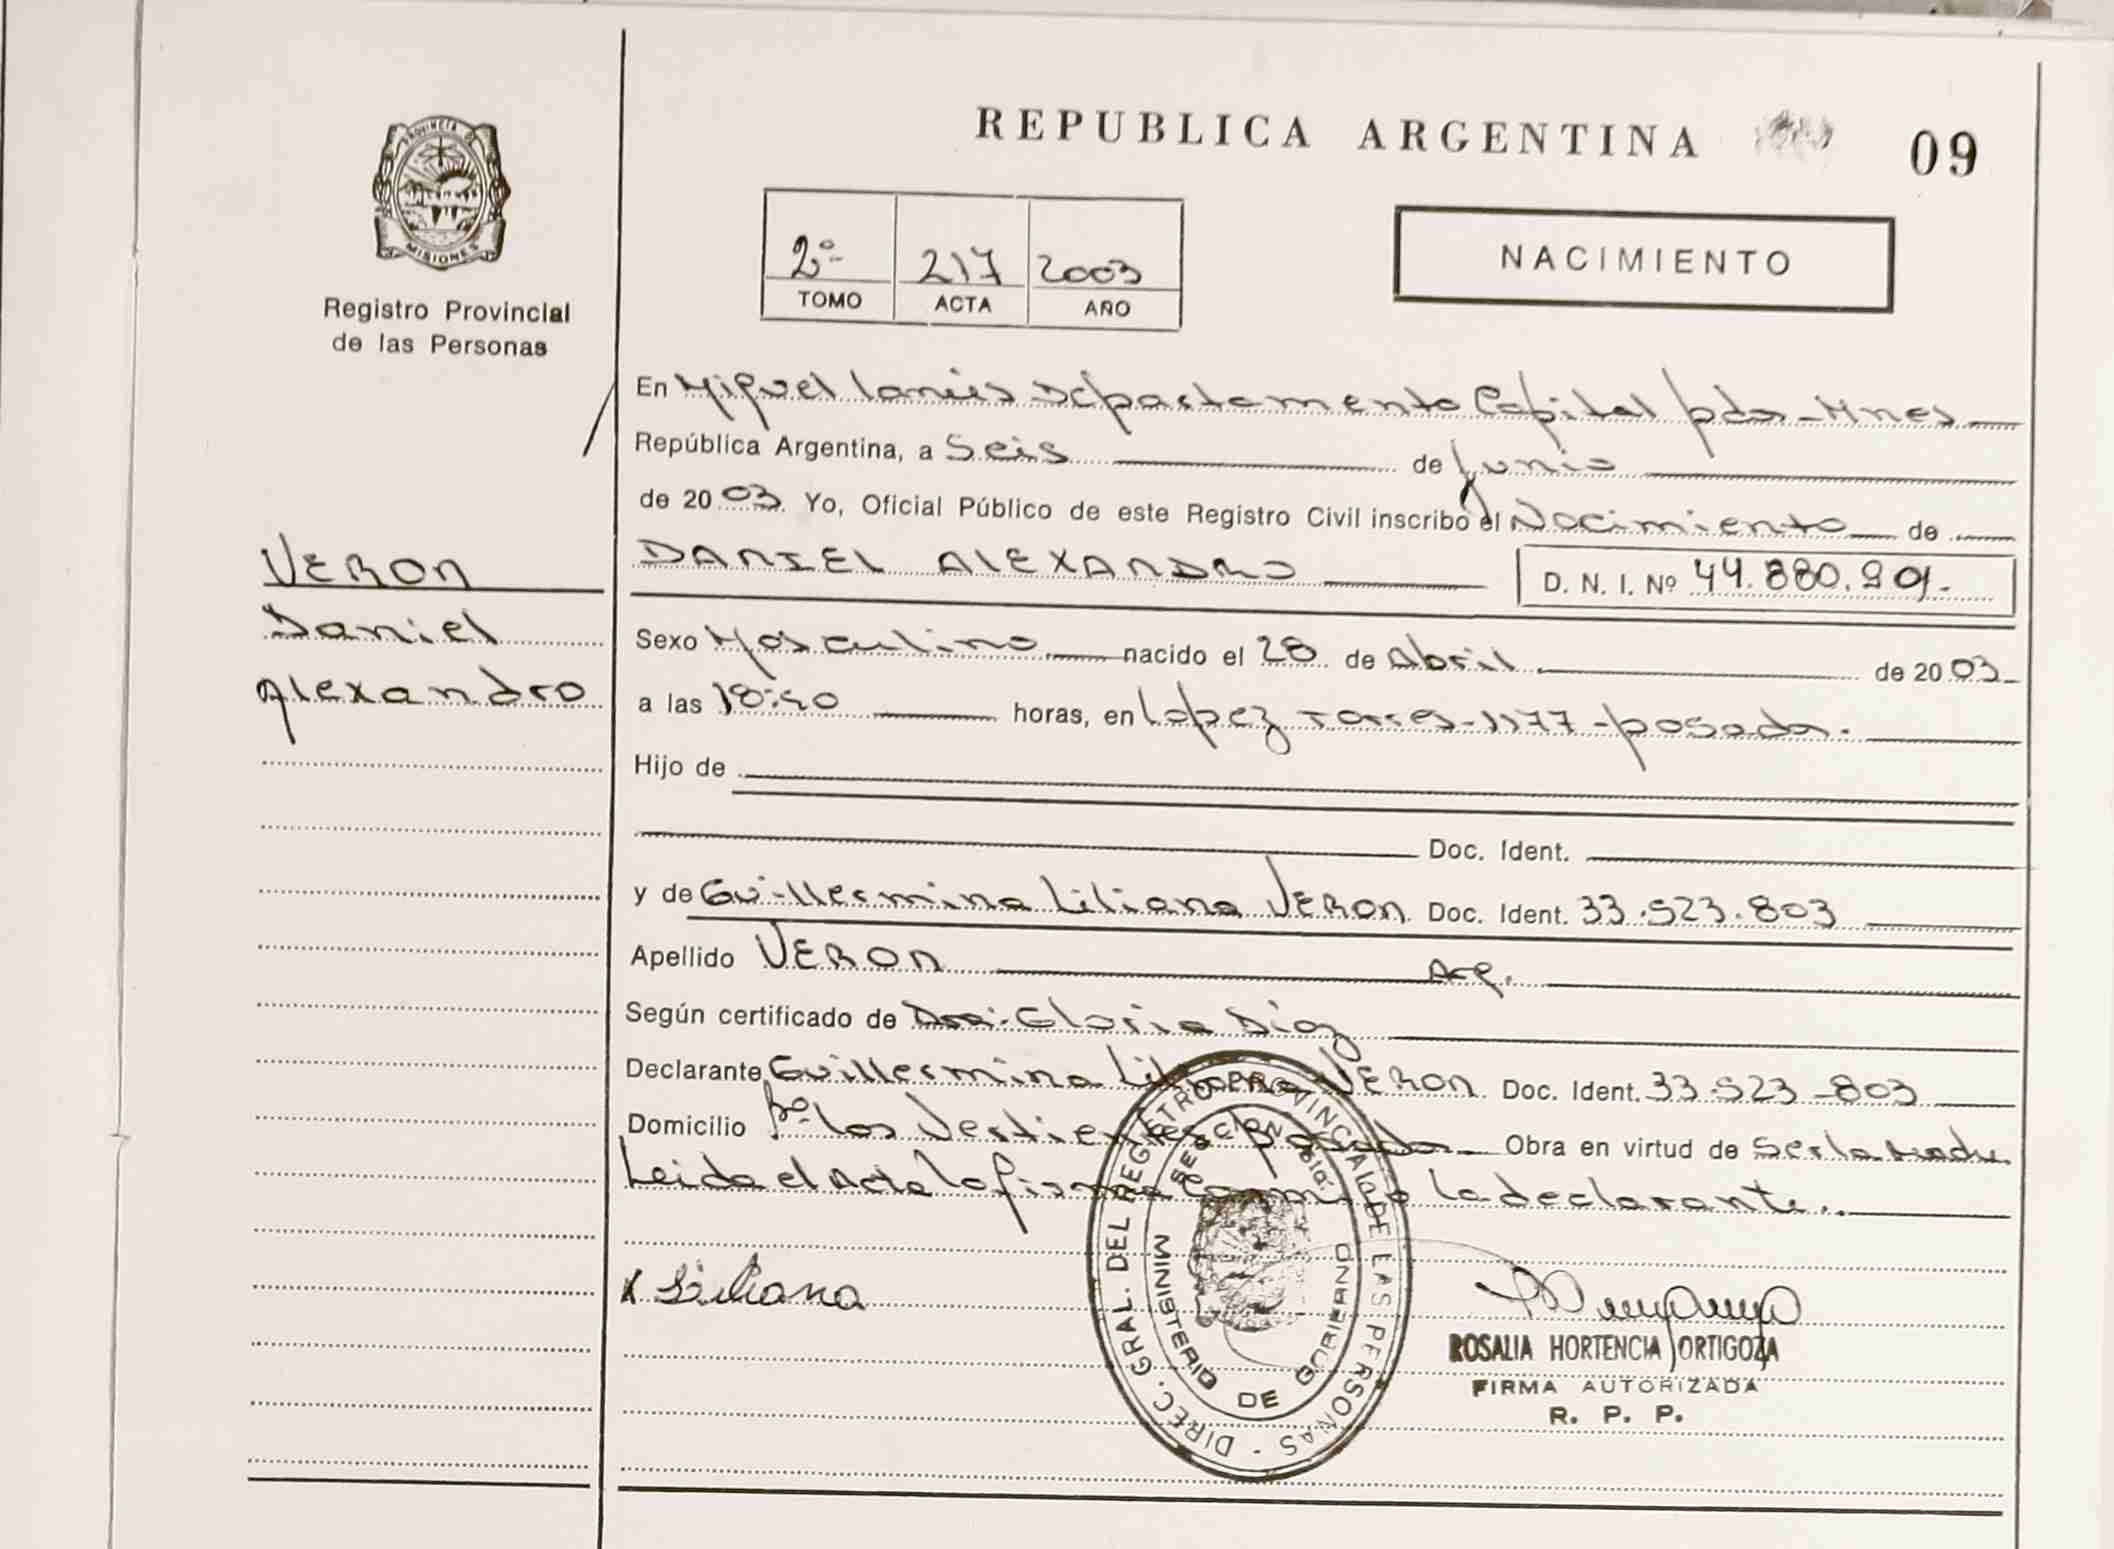 REPUBLICA ARGENTINA
09
PROVINCIA DE
MISIONES
Registro Provincial
de las Personas
2º 217 2003
TOMO ACTA AÑO
NACIMIENTO
En Miguel Lanús Departamento Capital pdas-Mnes
República Argentina, a Seis de Junio
de 2003. Yo, Oficial Público de este Registro Civil inscribo el Nacimiento de
VERON
Daniel
Alexandro
DANIEL ALEXANDRO
D. N. I. Nº 44.880.901.-
Sexo Masculino nacido el 28 de Abril de 2003
a las 18:40 horas, en Lopez Torres-1177-posadas.
Hijo de
Doc. Ident.
y de Guillermina Liliana VERON Doc. Ident. 33.523.803
Apellido VERON Arg.
Según certificado de Dra. Gloria Diaz
Declarante Guillermina Liliana VERON Doc. Ident. 33-523-803
Domicilio Bº Los Vertientes Posadas Obra en virtud de Ser la Madre
Leida el Acta la firma Conmigo la declarante.
x Liliana
DIREC. GRAL. DEL REGISTRO PROVINCIAL DE LAS PERSONAS
MINISTERIO DE GOBIERNO
ROSALIA HORTENCIA ORTIGOZA
FIRMA AUTORIZADA
R. P. P.